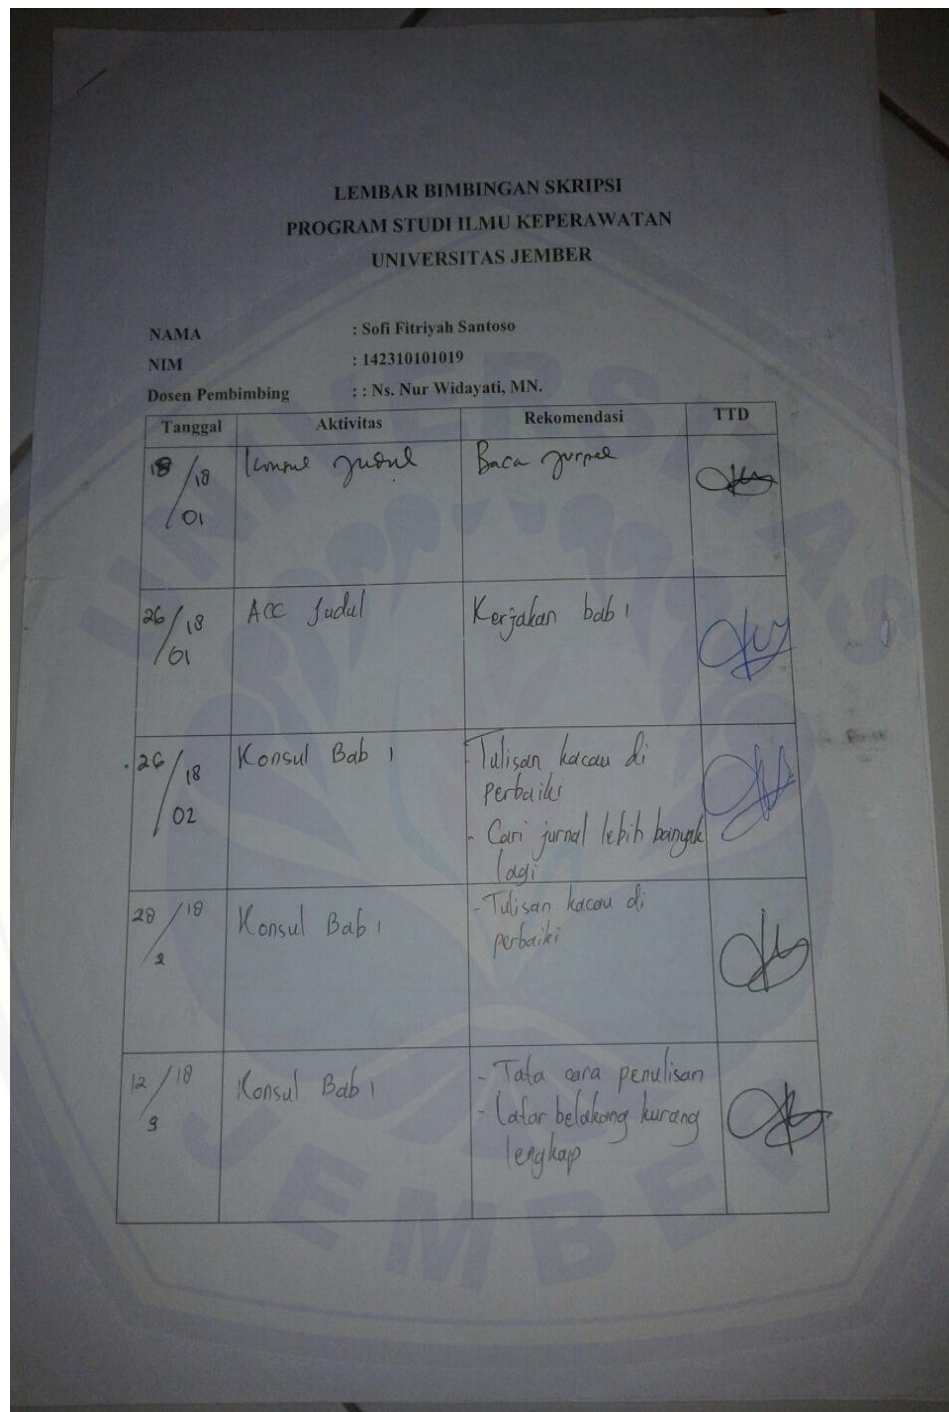 LEMBAR BIMBINGAN SKRIPSI
PROGRAM STUDI ILMU KEPERAWATAN
UNIVERSITAS JEMBER
NAMA : Sofi Fitriyah Santoso
NIM : 142310101019
Dosen Pembimbing : : Ns. Nur Widayati, MN.
Tanggal Aktivitas Rekomendasi TTD
18/18 Baca
/01
26/18 ACC Judul Kerjakan bab 1
/01
26/18 Konsul Bab 1 - Tulisan kacau di
perbaiki
/02 - Cari jurnal lebih banyak
lagi
28/18 Konsul Bab 1 - Tulisan kacau di
/2 perbaiki
12/18 Konsul Bab 1 - Tata cara penulisan
/3 - Latar belakang kurang
lengkap
UNIVERSITAS
JEMBER